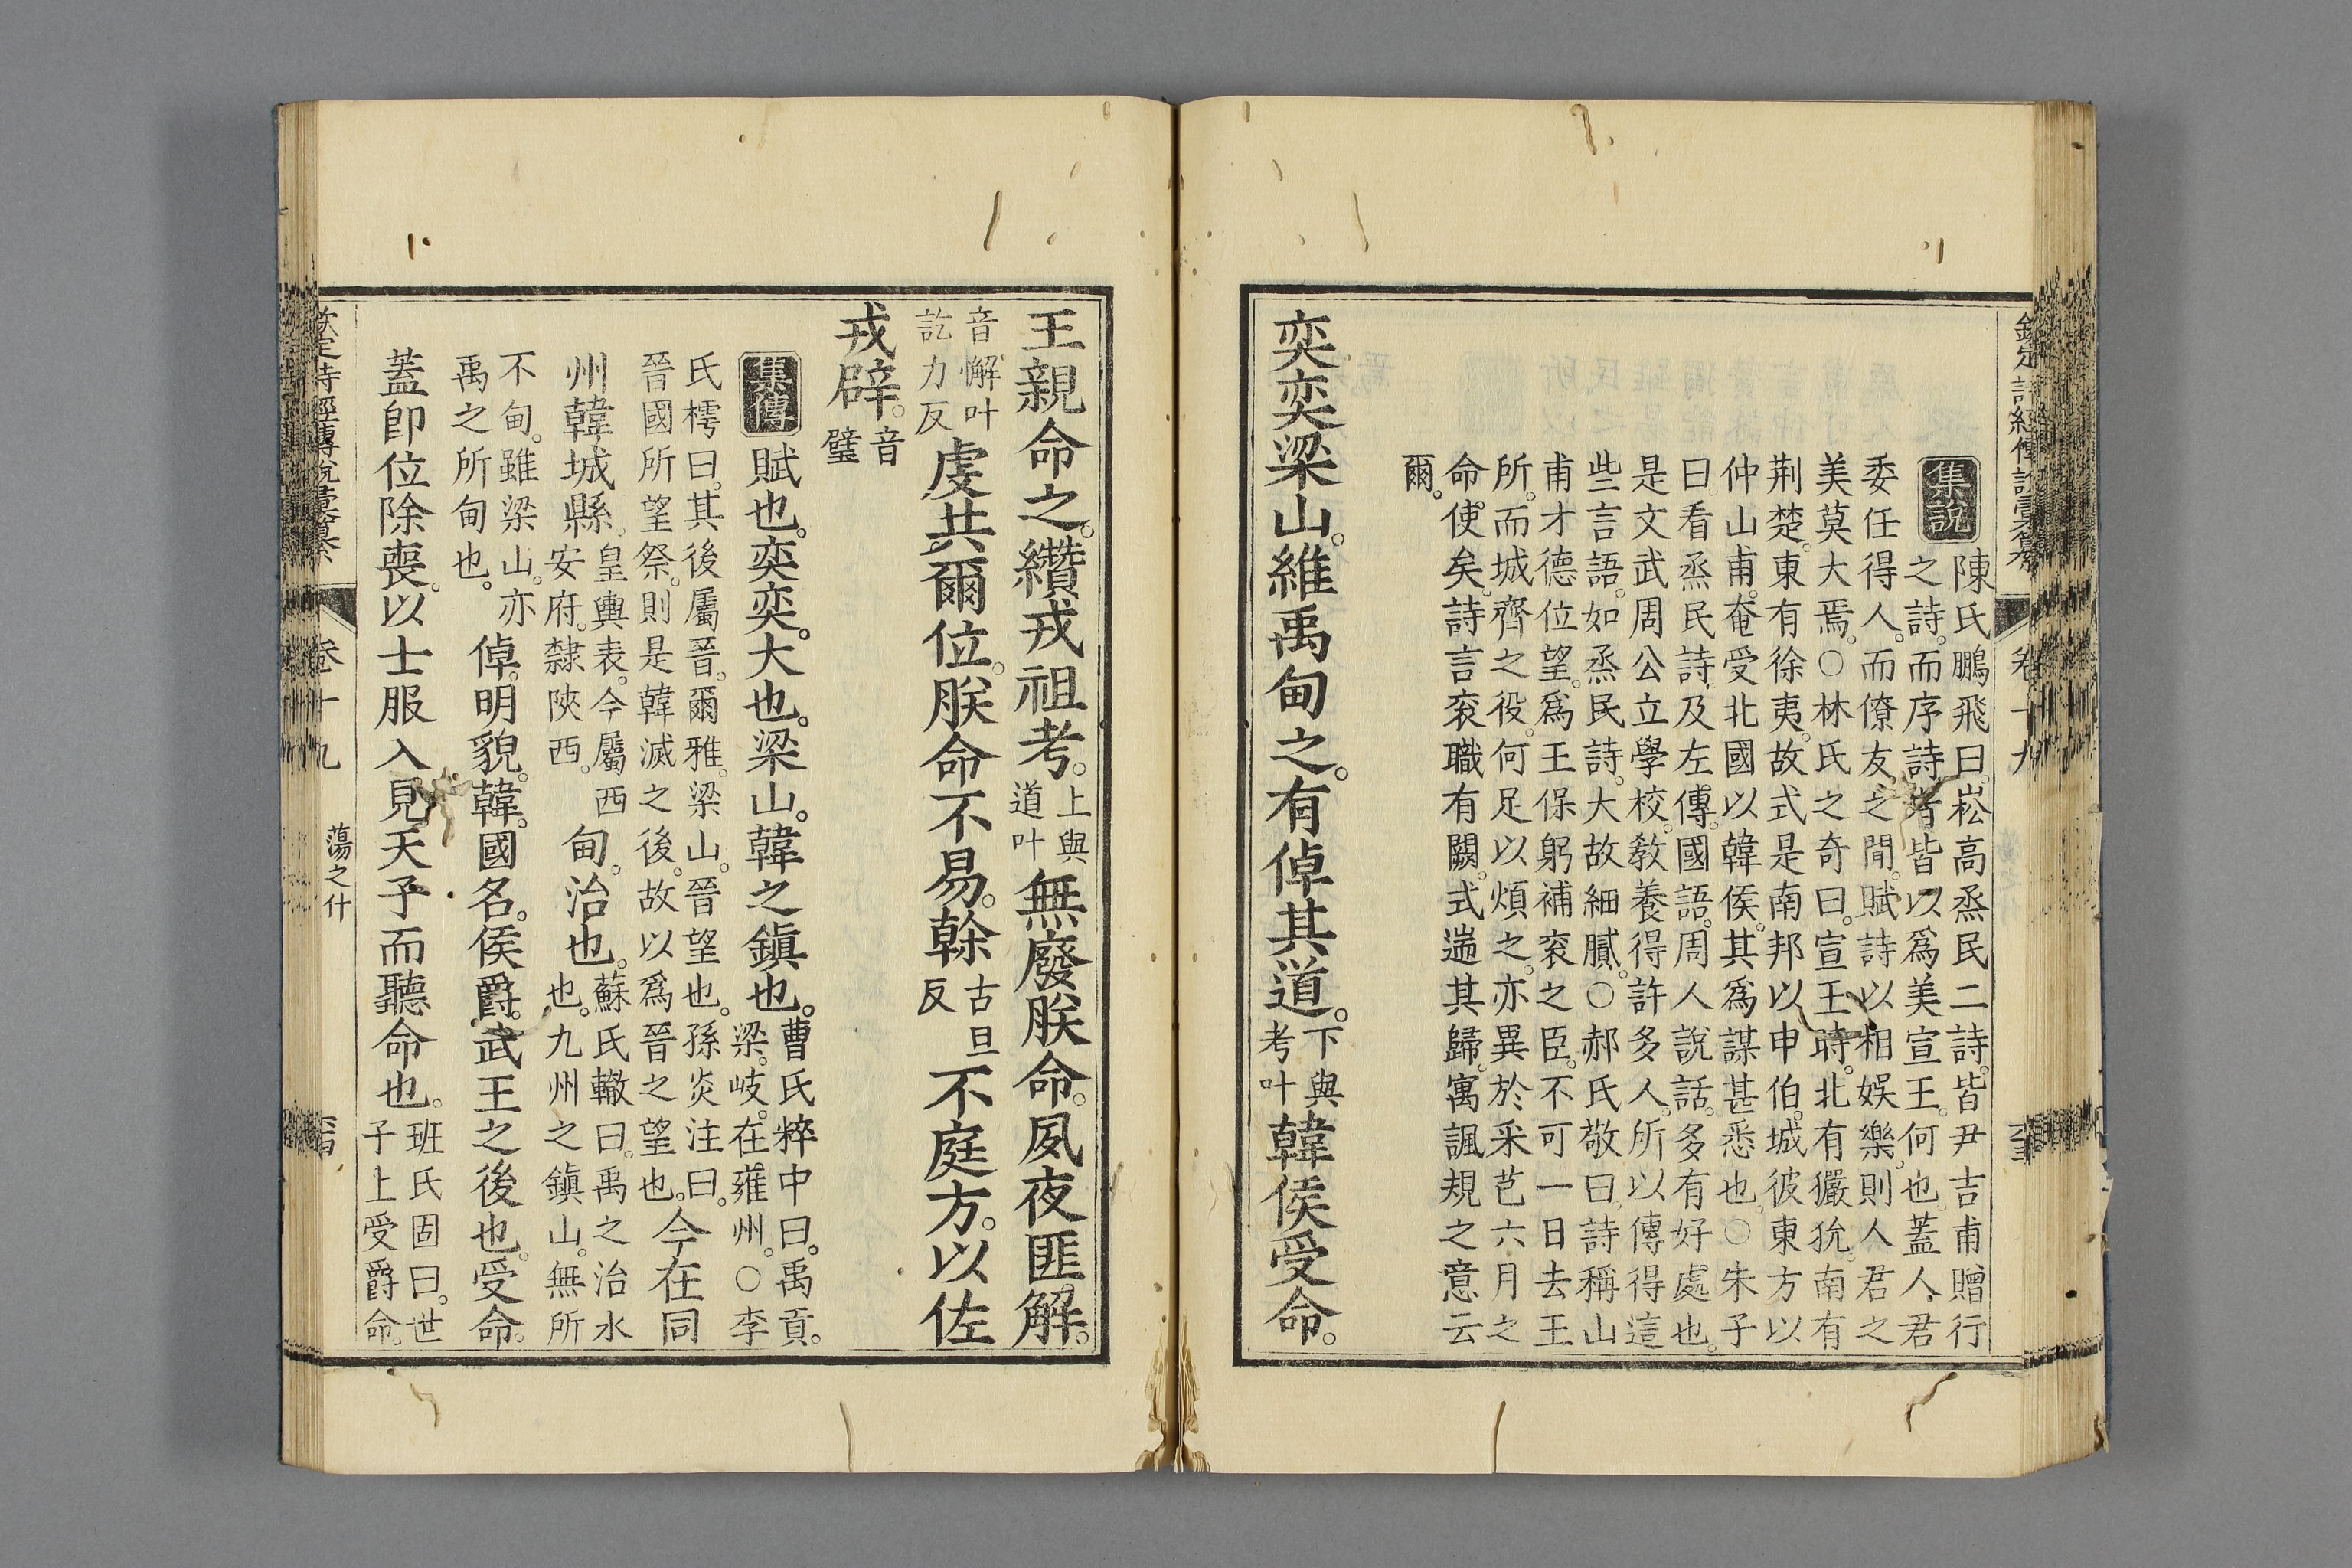 欽定詩經傳說彙纂 卷十九
集說 陳氏鵬飛曰。崧高烝民二詩。皆尹吉甫贈行
之詩。而序詩者皆以爲美宣王。何也。蓋人君
委任得人。而僚友之閒。賦詩以相娛樂。則人君之
美莫大焉。○林氏之奇曰。宣王時。北有玁狁。南有
荆楚。東有徐夷。故式是南邦以申伯。城彼東方以
仲山甫。奄受北國以韓侯。其爲謀甚悉也。○朱子
曰。看烝民詩。及左傳。國語。周人說話。多有好處也。
是文武周公立學校。教養得許多人。所以傳得這
些言語。如烝民詩。大故細膩。○郝氏敬曰。詩稱山
甫才德位望。爲王保躬補袞之臣。不可一日去王
所。而城齊之役。何足以煩之。亦異於采芑六月之
命使矣。詩言袞職有闕。式遄其歸。寓諷規之意云
爾。
奕奕梁山。維禹甸之。有倬其道。下與考叶韓侯受命。
王親命之。纘戎祖考。上與道叶無廢朕命。夙夜匪解。
音懈叶訖力反虔共爾位。朕命不易。榦古旦反不庭方。以佐
戎辟。音璧
集傳 賦也。奕奕。大也。梁山。韓之鎮也。曹氏粹中曰。禹貢。梁。岐。在雍州。○李
氏樗曰。其後屬晉。爾雅。梁山。晉望也。孫炎注曰。晉國所望祭。則是韓滅之後。故以爲晉之望也。今在同
州韓城縣。皇輿表。今屬西安府。隸陝西。甸。治也。蘇氏轍曰。禹之治水也。九州之鎮山。無所
不甸。雖梁山。亦禹之所甸也。倬。明貌。韓。國名。侯爵。武王之後也。受命。
蓋卽位除喪。以士服入見天子而聽命也。班氏固曰。世子上受爵命。
欽定詩經傳說彙纂 卷十九 蕩之什